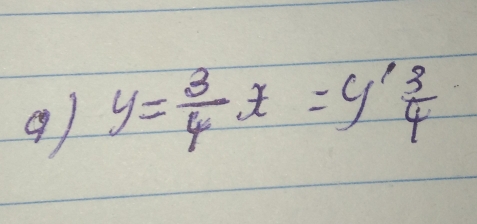 a) y = 3/4 x = y' 3/4